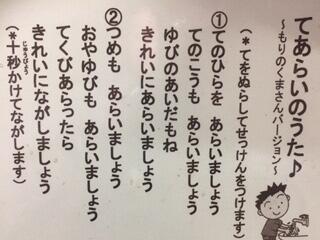 てあらいのうた♪
～もりのくまさんバージョン～
（＊てをぬらしてせっけんをつけます）
①てのひらを　あらいましょう
てのこうも　あらいましょう
ゆびのあいだもね
きれいにあらいましょう
②つめも　あらいましょう
おやゆびも　あらいましょう
てくびあらったら
きれいにながしましょう
（＊十秒かけてながします）
じゅうびょう